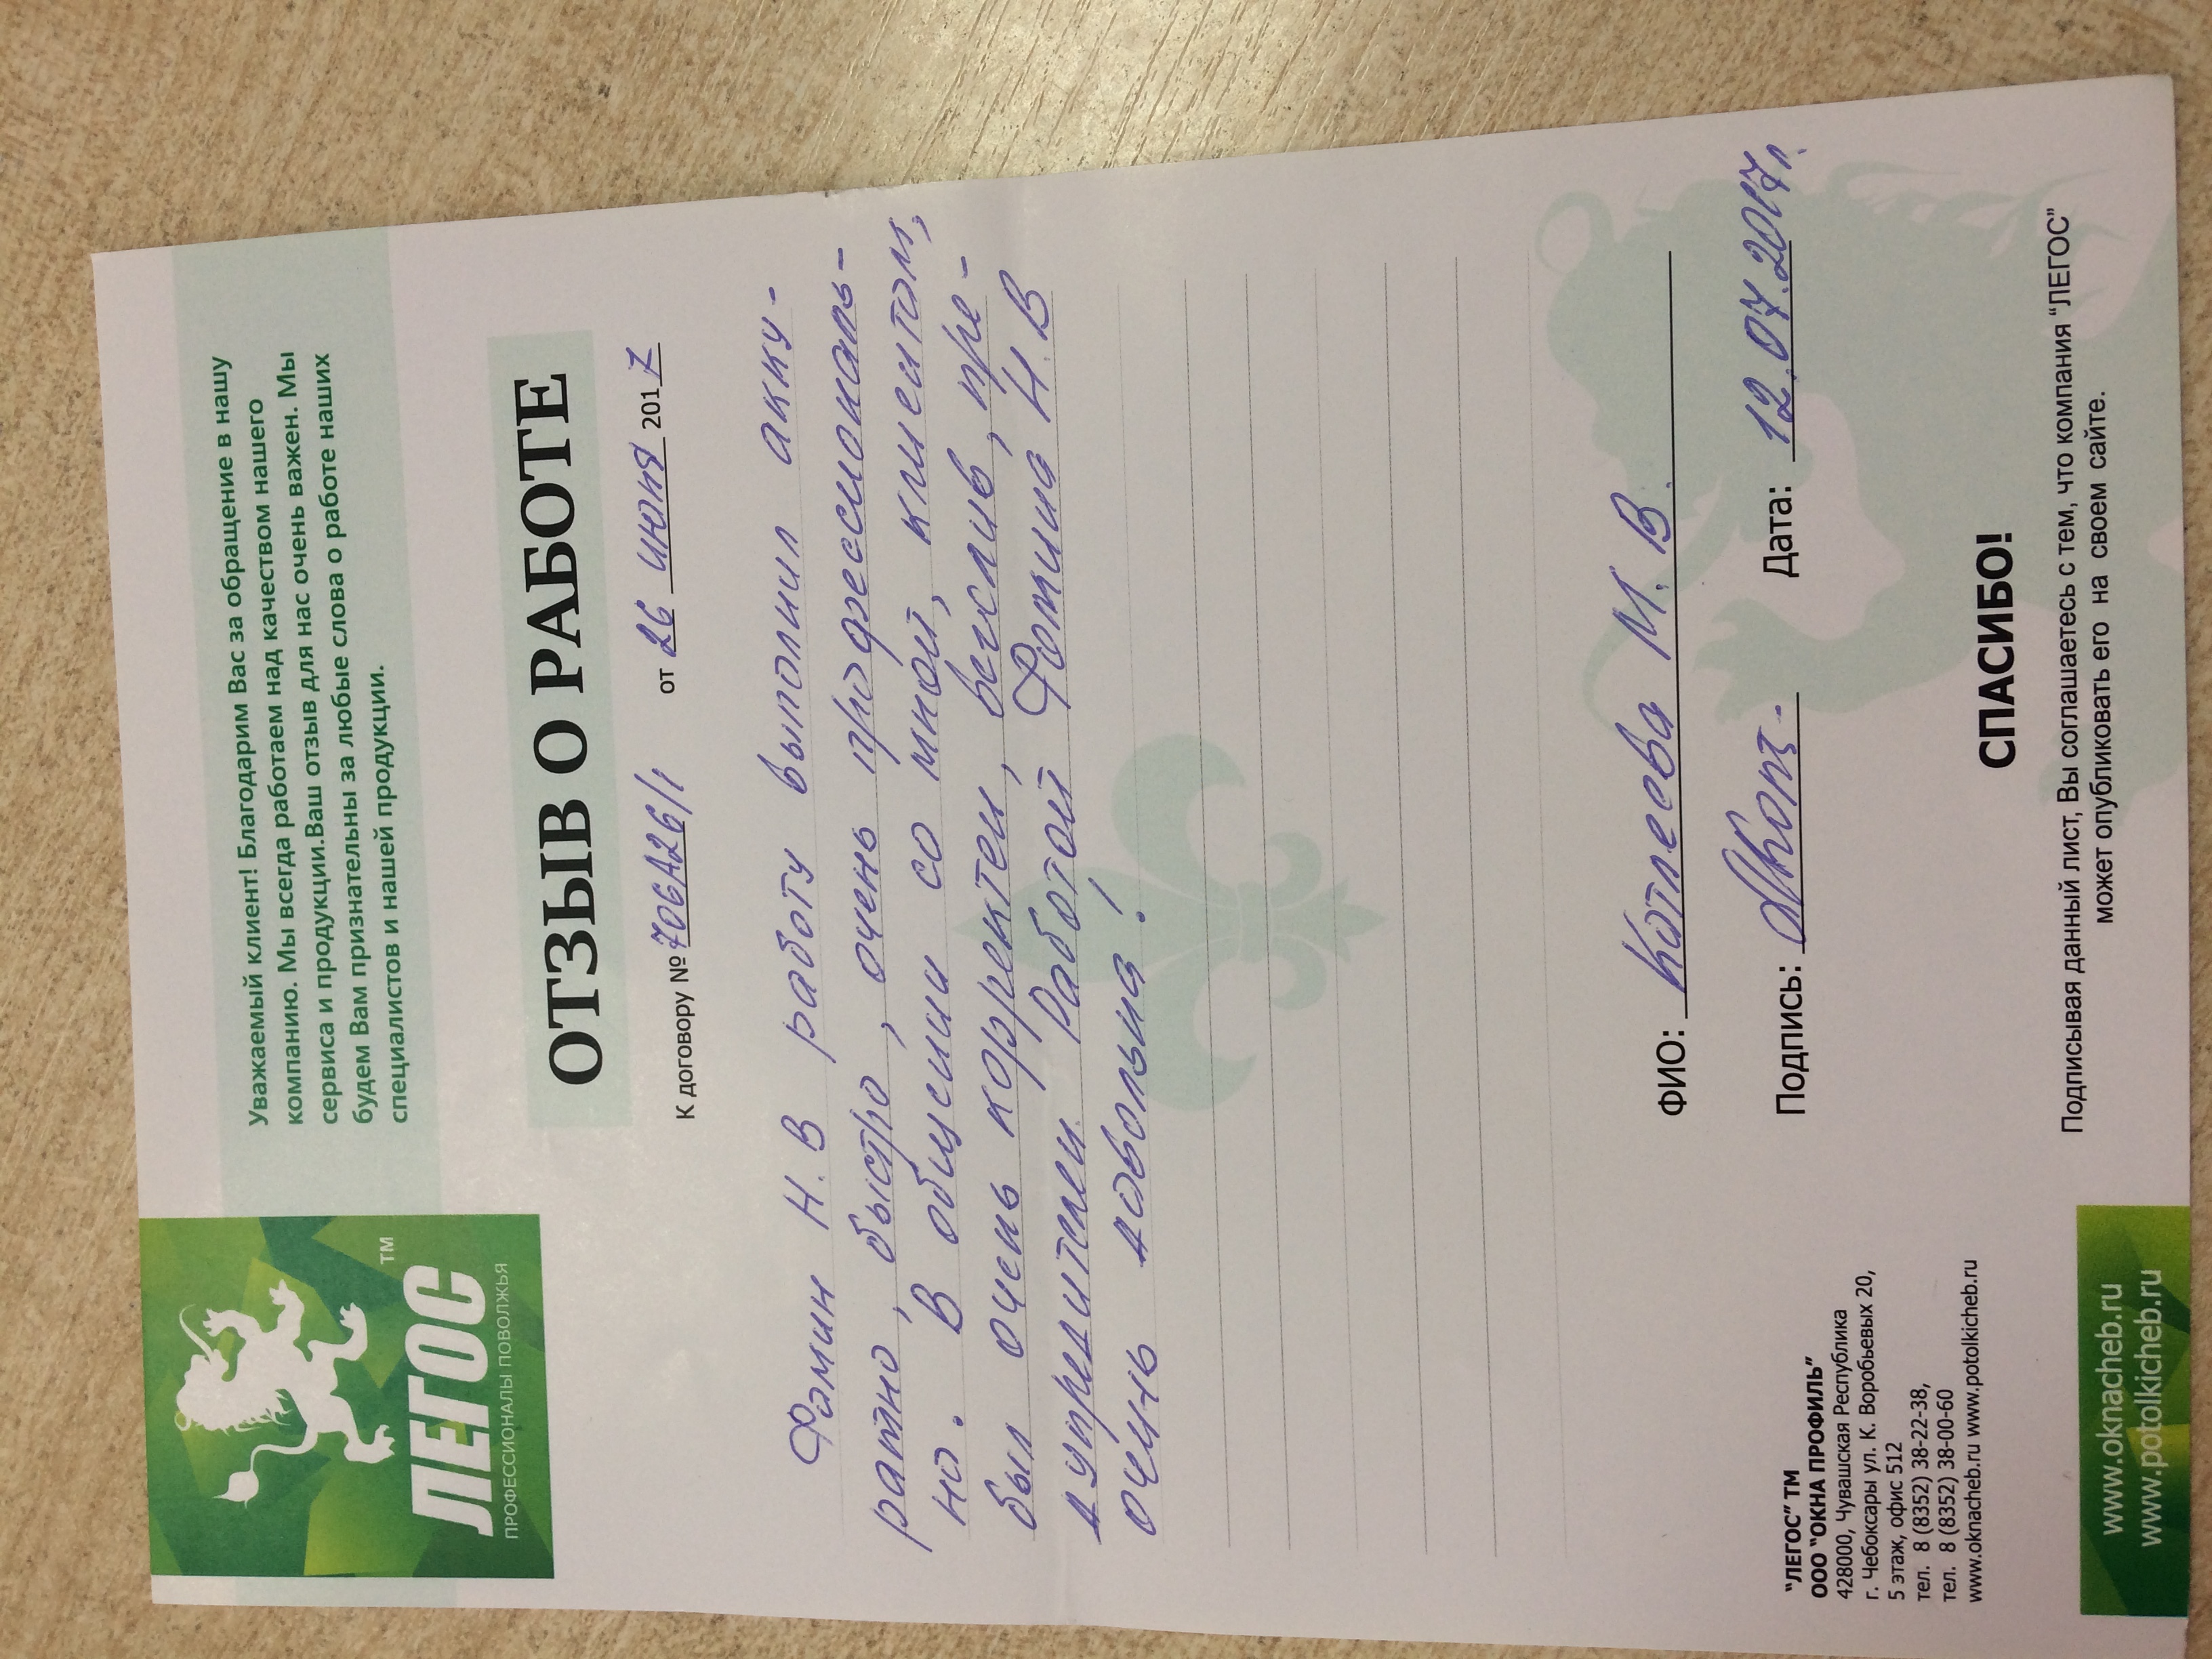 ТМ
ЛЕГОС
ПРОФЕССИОНАЛЫ ПОВОЛЖЬЯ
Уважаемый клиент! Благодарим Вас за обращение в нашу
компанию. Мы всегда работаем над качеством нашего
сервиса и продукции.Ваш отзыв для нас очень важен. Мы
будем Вам признательны за любые слова о работе наших
специалистов и нашей продукции.
ОТЗЫВ О РАБОТЕ
К договору № 706А26/1 от 26 июня 2017
Фомин Н.В работу выполнил акку-
ратно, быстро, очень профессиональ-
но. В общении со мной, клиентом,
был очень корректен, вежлив, пре-
дупредителен. Работой Фомина Н.В
очень довольна!
ФИО: Котлеева М. В.
Подпись: Дата: 12.07.2017г.
"ЛЕГОС" ТМ
ООО "ОКНА ПРОФИЛЬ"
428000, Чувашская Республика
г. Чебоксары ул. К. Воробьевых 20,
5 этаж, офис 512
тел. 8 (8352) 38-22-38,
тел. 8 (8352) 38-00-60
www.oknacheb.ru www.potolkicheb.ru
СПАСИБО!
Подписывая данный лист, Вы соглашаетесь с тем, что компания "ЛЕГОС"
может опубликовать его на своем сайте.
www.oknacheb.ru
www.potolkicheb.ru